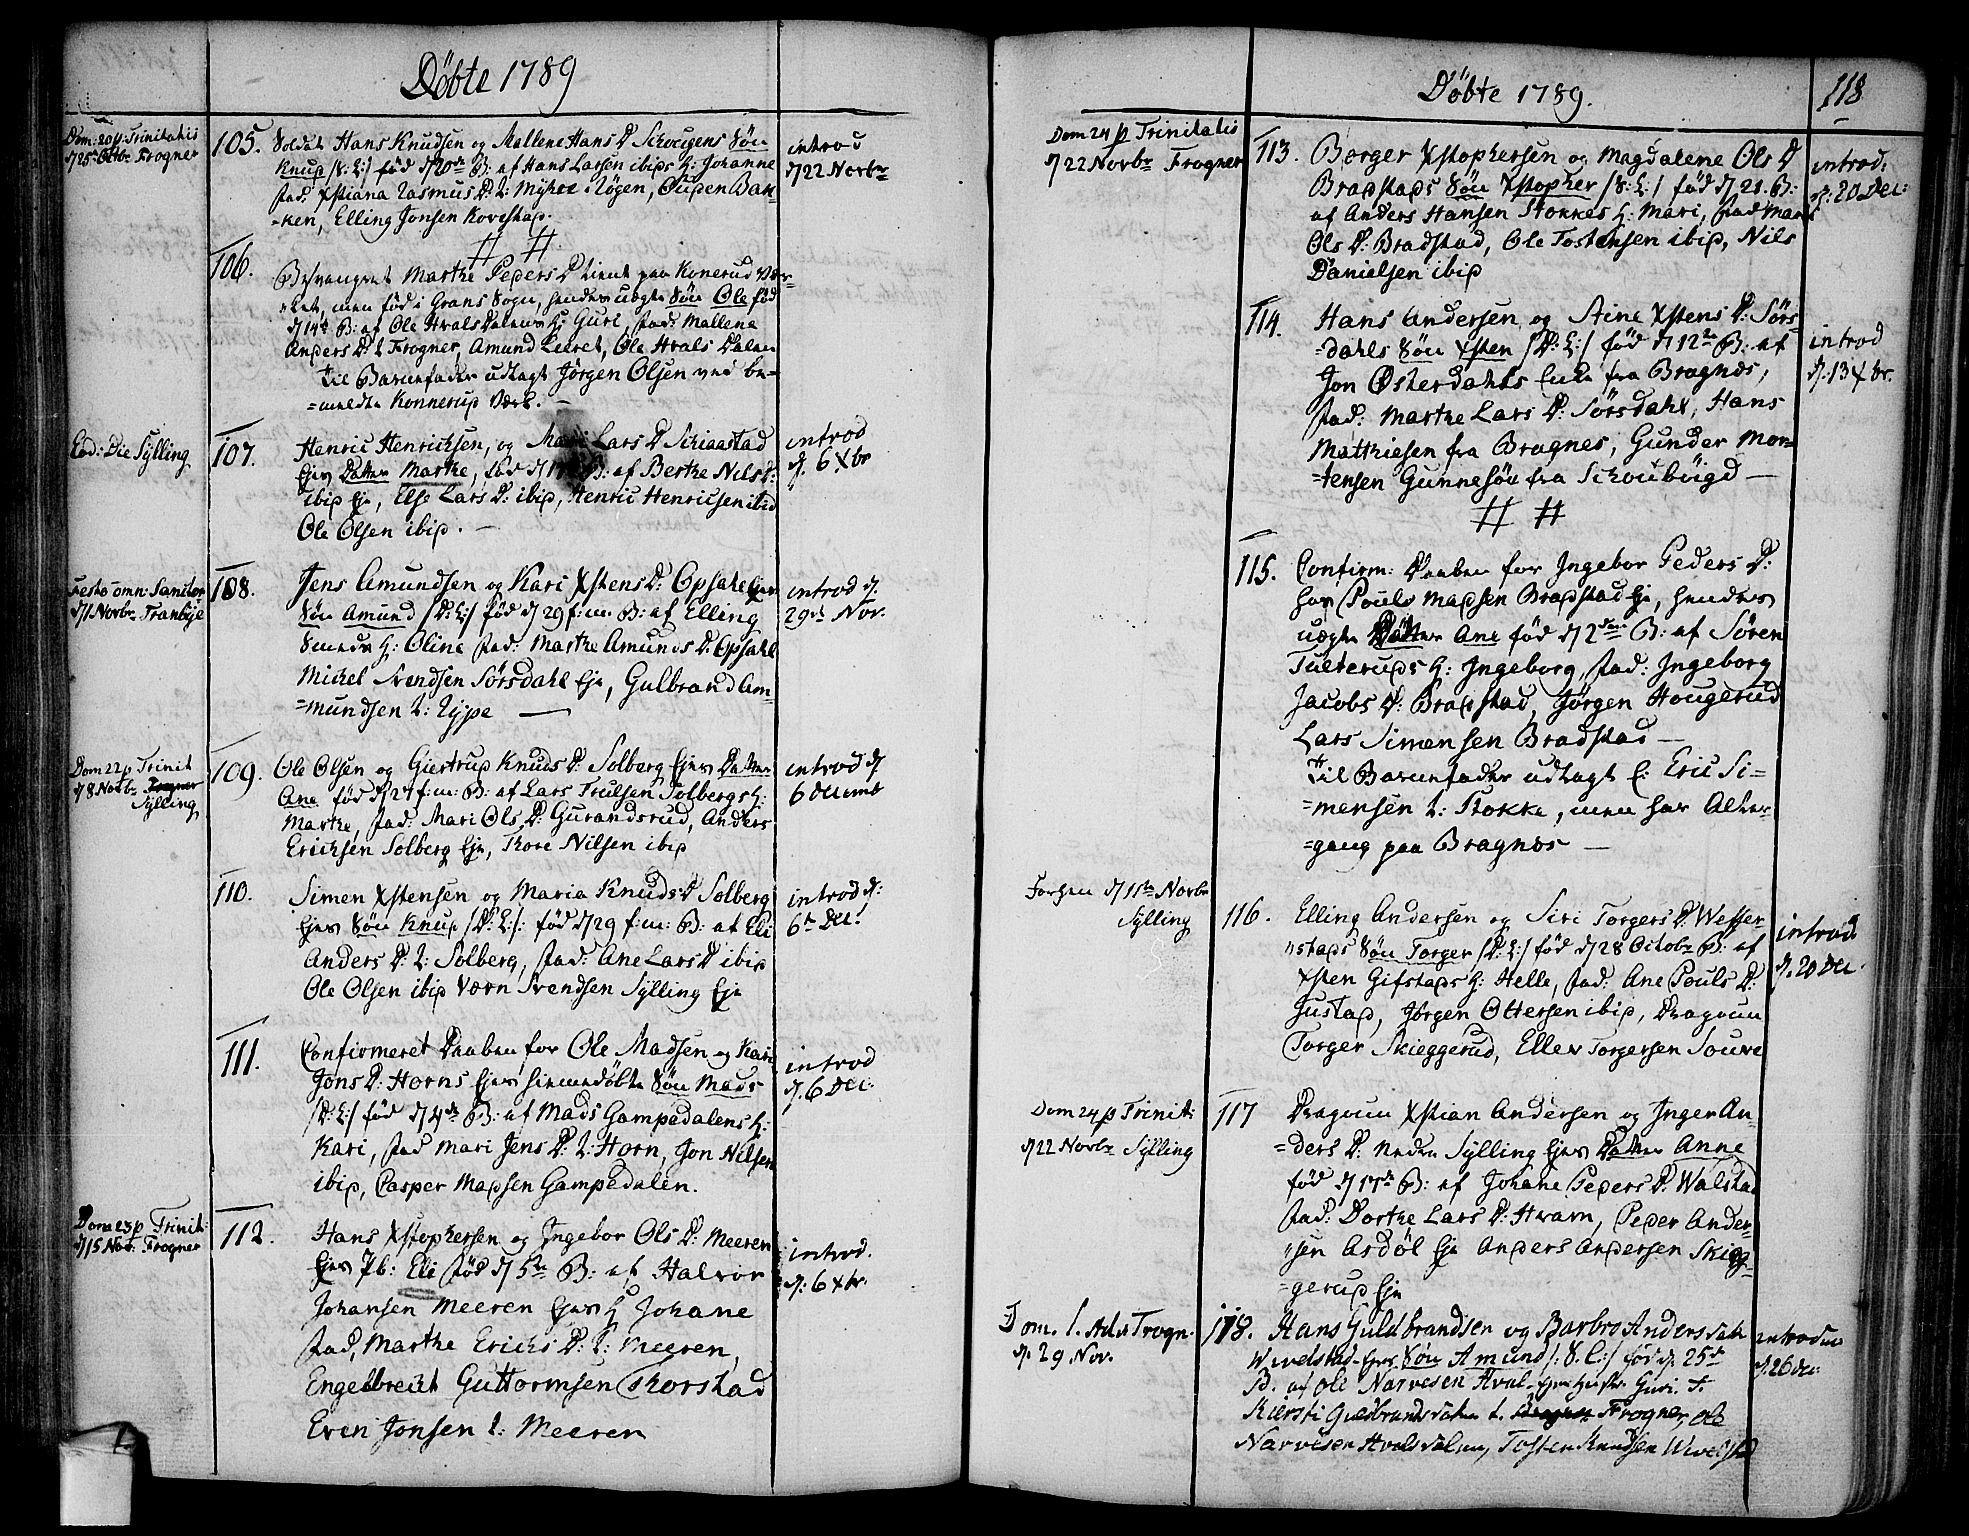 Döbte 1789
Dom: 20 p: Trinitatis
d 25 Octbr Frogner
105. Soldat Hans Knudsen og Mallene Hans D Schougens Sön
Knud /:S: L:/ fød d 20de B: af Hans Larsen ibids H: Johanne
fad: Xstiana Rasmus D: t: Myhre i Rögen, Gud en Ban-
ken, Elling Jonsen Kovestad.
introd
d 22 Novbr
# #
106. Besvangret Marthe Peders D tient paa Konerud Vær-
ket, men fød i Grans Sogn, hendes uægte Sön Ole fød
d 14de B: af Ole Hvals Dalens H: Guri, fad: Mallene
Anders D: t Frogner, Amund Leeret, Ole Hvals Dalen
Til Barnefader udlagt Jörgen Olsen ved be-
=meldte Konnerud Værk. —
Eod: Die Sylling
107. Henric Henrichsen, og Mari Lars D Schiaastad
Ejes Datter Marthe, fød d B: af Berthe Nils D:
ibid Eje, Else Lars D: ibid, Henric Henricsen ibid
Ole Olsen ibid. —
introd
d. 6 Xbr
Festo omn: Sanctor
d 1 Novbr Tranbye
108. Jens Amundsen og Kari Xstens D: Opsahl Ejes
Sön Amund /D: L:/ fød d 29 f: m: B: af Elling
Smeds H: Oline fad: Marthe Amunds D: Opsahl
Michel Svendsen Sörsdahl Eje, Gulbrand Am-
=mundsen t: Rype —
introd d.
29de Nov.
Dom 22 p Trinit
d 8 Novbr Frogner
Sylling
109. Ole Olsen og Giertrud Knuds D: Solberg Ejes Datter
Ane fød d 27 f: m: B: af Lars Trulsen Solbergs H:
Marthe, fad: Mari Ols D: Gurandsrud, Anders
Erichsen Solberg Eje, Thore Nilsen ibid
introd d
6 Decemb
110. Simen Xstensen og Maria Knuds D Solberg
Ejes Sön Knud /D: L:/: fød d 29 f: m: B: af Eli
Anders D: t: Solberg, fad: Ane Lars D ibid
Ole Olsen ibid Værn Svendsen Sylling Eje
introd d:
6te Dec:
111. Confirmeret Daaben for Ole Madsen og Kari
Jons D: Horns Ejes hiemmedöbte Sön Mads
/D: L:/ fød d 4de B: af Mads Gampedalens H:
Kari, fad Mari Jens D: t: Horn, Jon Nilsen
ibid, Casper Madsen Gampedalen.
introd
d. 6 Dec:
Dom 23 p Trinit:
d 15 Nov: Frogner
112. Hans Xstophersen og Ingebor Ols D: Meeren
Ejes Pb: Eli fød d 5te B: af Halvor
Johansen Meeren Ejes H Johane
fad, Marthe Erichs D: t: Meeren,
Engelbrect Guttormsen Thorstad
Even Jonsen t: Meeren
introd.
d. 6 Xbr.
Döbte 1789.
118
Dom 24 p Trinitatis
d 22 Novbr Frogner
113. Borger Xstophersen og Magdalene Ols D
Bradstads Sön Xstopher /S: L:/ fød d 21. B:
af Anders Hansen Stokkes H: Mari, fad Mari
Ols D: Bradstad, Ole Tostensen ibid, Nils
Danielsen ibid
introd:
d: 20 Dec:
114. Hans Andersen og Stine Xstens D: Sörs-
=dahls Sön Xsten /D: L:/ fød d 12te B: af
Jon Österdahls Enke fra Bragnæs,
fad: Marthe Lars D: Sörsdahl, Hans
Matthiesen fra Bragnes, Gunder Mon-
=tensen Gunnesöe fra Schouböigd —
introd
d. 13 Xbr.
# #
115. Confirm: Daaben for Ingebor Peders D:
hos Pouls Madsen Bradstad Eje, hendes
uægte Datter Ane fød d 2den B: af Sören
Tulteruds H: Ingeborg, fad: Ingeborg
Jacobs D: Bradstad, Jörgen Hougerud
Lars Simensen Bradstad —
Til Barnefader udlagt E: Eric Si-
=mensen t: Stokke, men har Alter-
=gang paa Bragnæs —
d 11te Novbr
Sylling
116. Elling Andersen og Siri Torgers D: Wefser-
=stads Sön Torger /D: L:/ fød d 28 Octobr B: af
Xsten Gifstads H: Helle, fad: Ane Pouls D:
Justad, Jörgen Ottersen ibid, Dragoun
Torger Skieggerud, Ellev Torgersen Soure
introd
d. 20 Dec.
Dom 24 p Trinit:
d 22 Novbr Sylling
117 Dragoun Xstian Andersen og Inger An-
=ders D: Nedre Sylling Ejes Datter Anne
fød d 17de B: af Johane Peders D: Walstad
fad: Dorthe Lars D: Hvam, Peder Ander-
=sen Asdöl Eje Anders Andersen Skieg-
=gerud Eje
Dom. 1. Adv. Frogn.
d. 29 Nov.
118. Hans Guldbrandsen og Barbro Andersdatr
Wivelstad Ejes Sön Amund /: S. L:/ fød d. 25de
B. af Ole Narvesen Hval Ejes Hustr. Guri. F.
Kiersti Guldbrandsdatter t. Frogner, Ole
Narvesen Hvalsdalen, Tosten Knudsen Wivelstad
introd
d. 26 Dec: